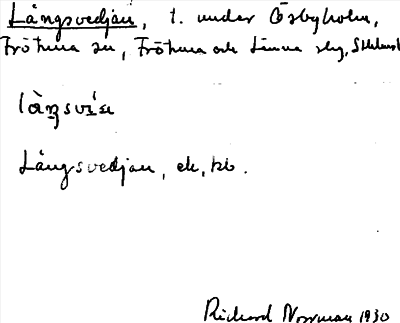 Långsvedjan, t. under Österbyholm,
Frötuna sn, Frötuna och Länna slg, Sthlmsl
Långsvedjan, ek, kb.
Richard Norrman 1930